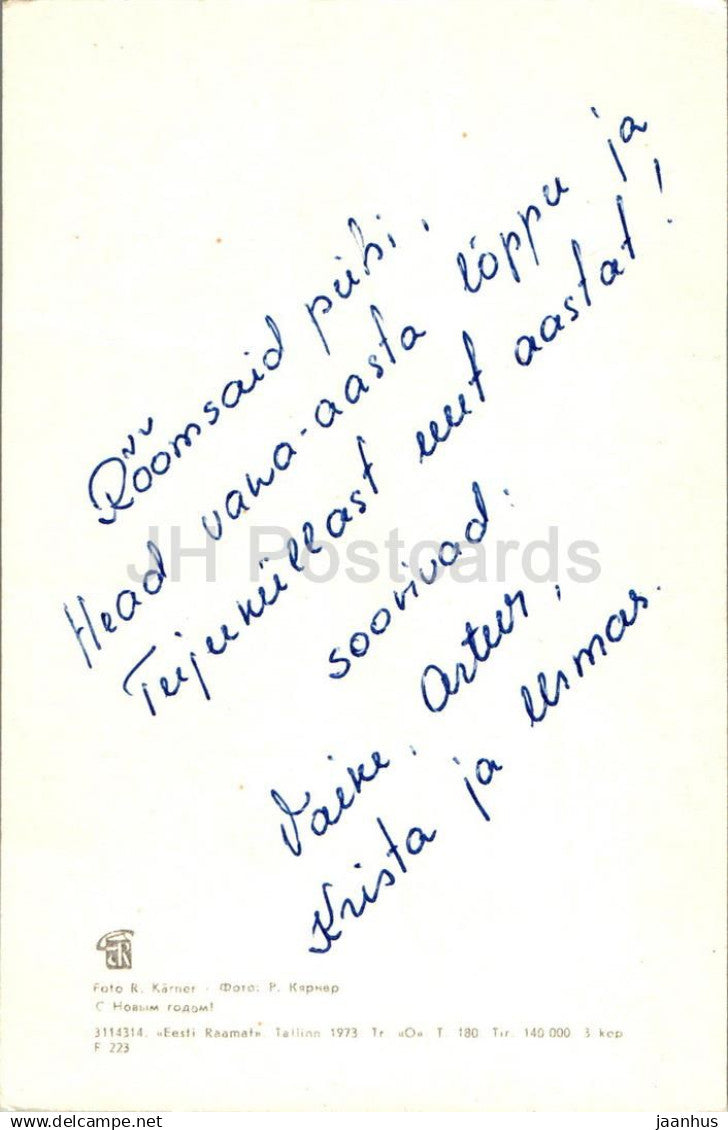 Rõõmsaid pühi,
Head vana-aasta lõppu ja
Tujuküllast uut aastat!
soovivad:
Vaike, Artur,
Krista ja Urmas.
JH Postcards
Foto R. Kärner · Фото: Р. Кярнер
С Новым годом!
3114314. «Eesti Raamat». Tallinn 1973 Tr. «O». T. 180. Tir. 140 000. 3 kop
F 223
www.delcampe.net
jaanhus